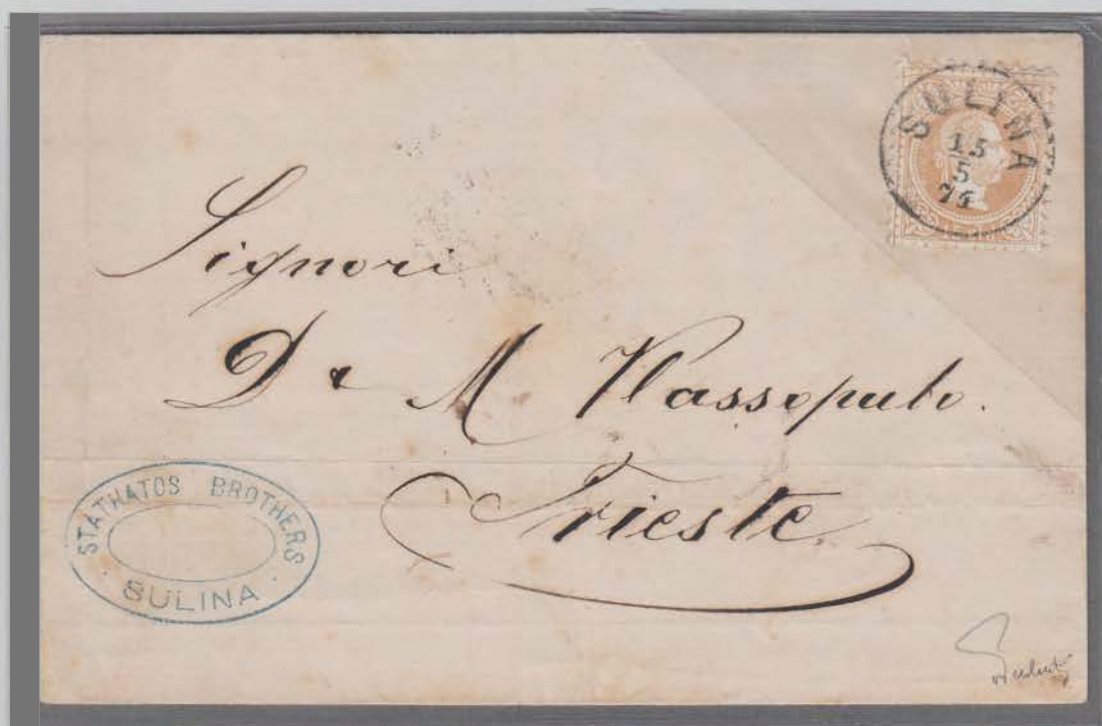 SULINA
15
5
75
Signori
D & M Vlassopulo.
Trieste.
STATHATOS BROTHERS
· SULINA ·